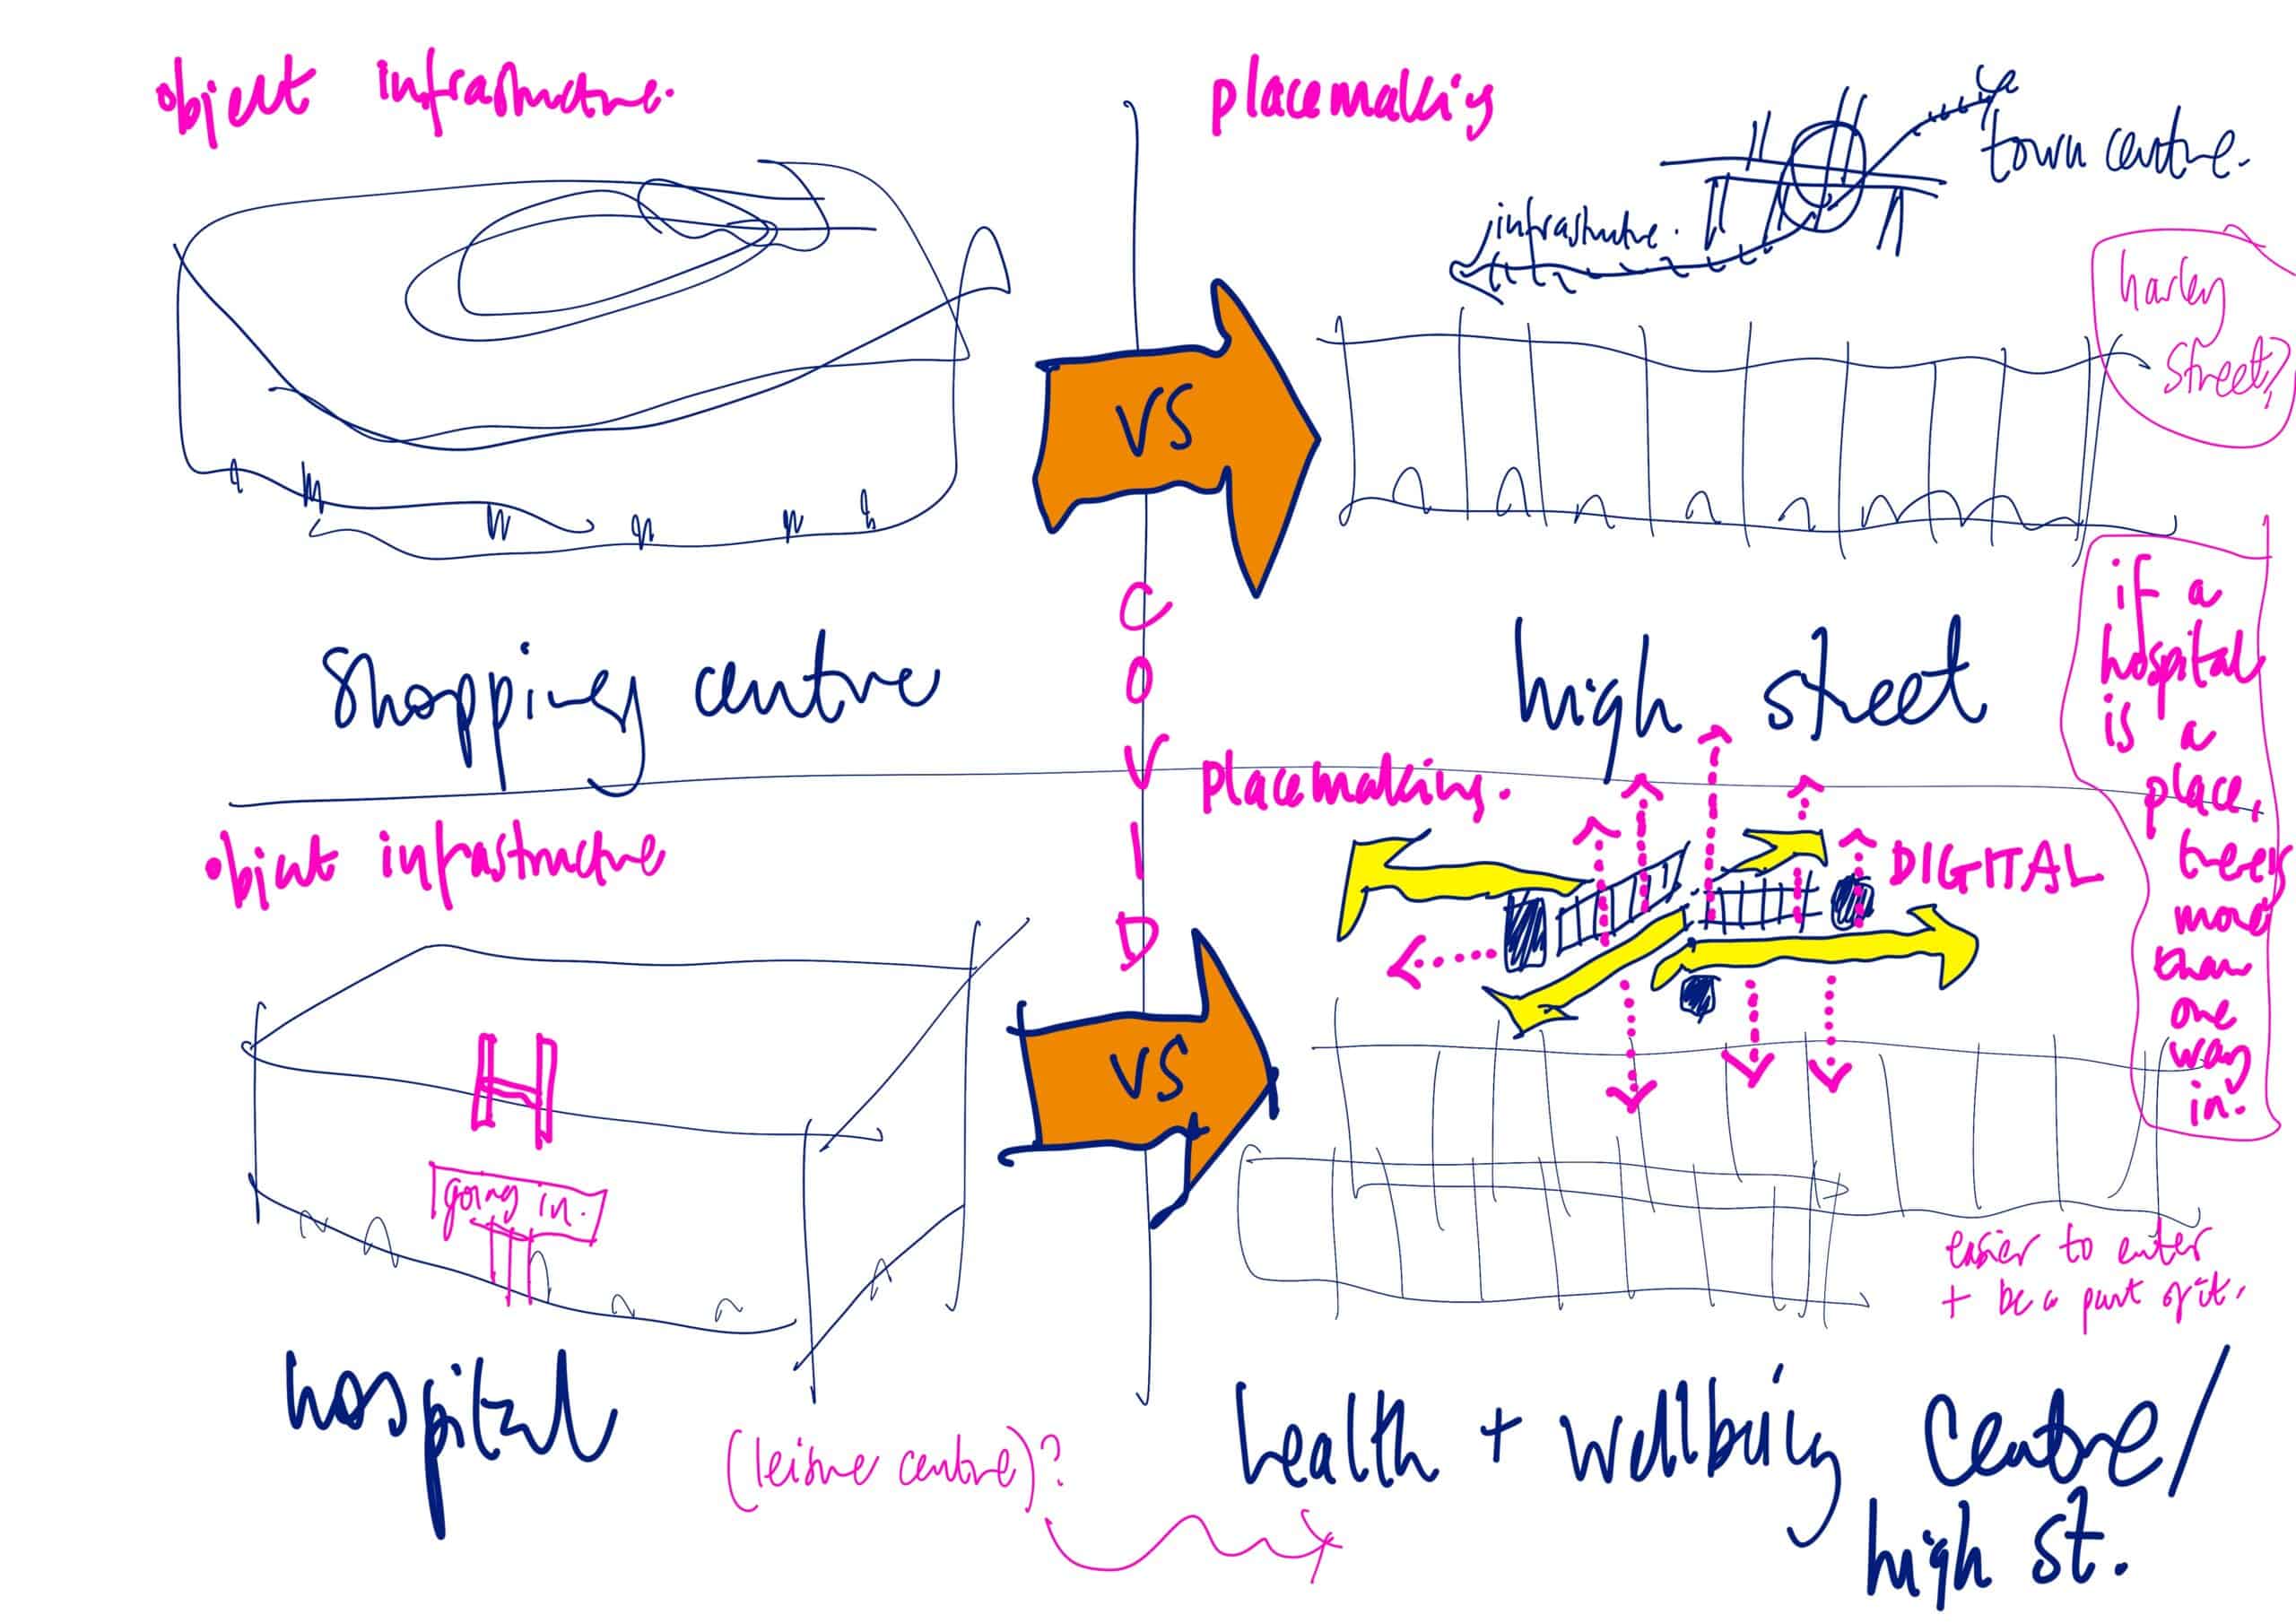 object infrastructure.
placemaking
town centre.
infrastructure.
harley
street?
VS
shopping centre
high street
COVID
object infrastructure
placemaking.
DIGITAL
if a
hospital
is a
place,
theres
more
than
one
way
in.
H
going in.
VS
easier to enter
+ be a part of it.
hospital
(leisure centre)?
health + wellbeing centre/
high st.